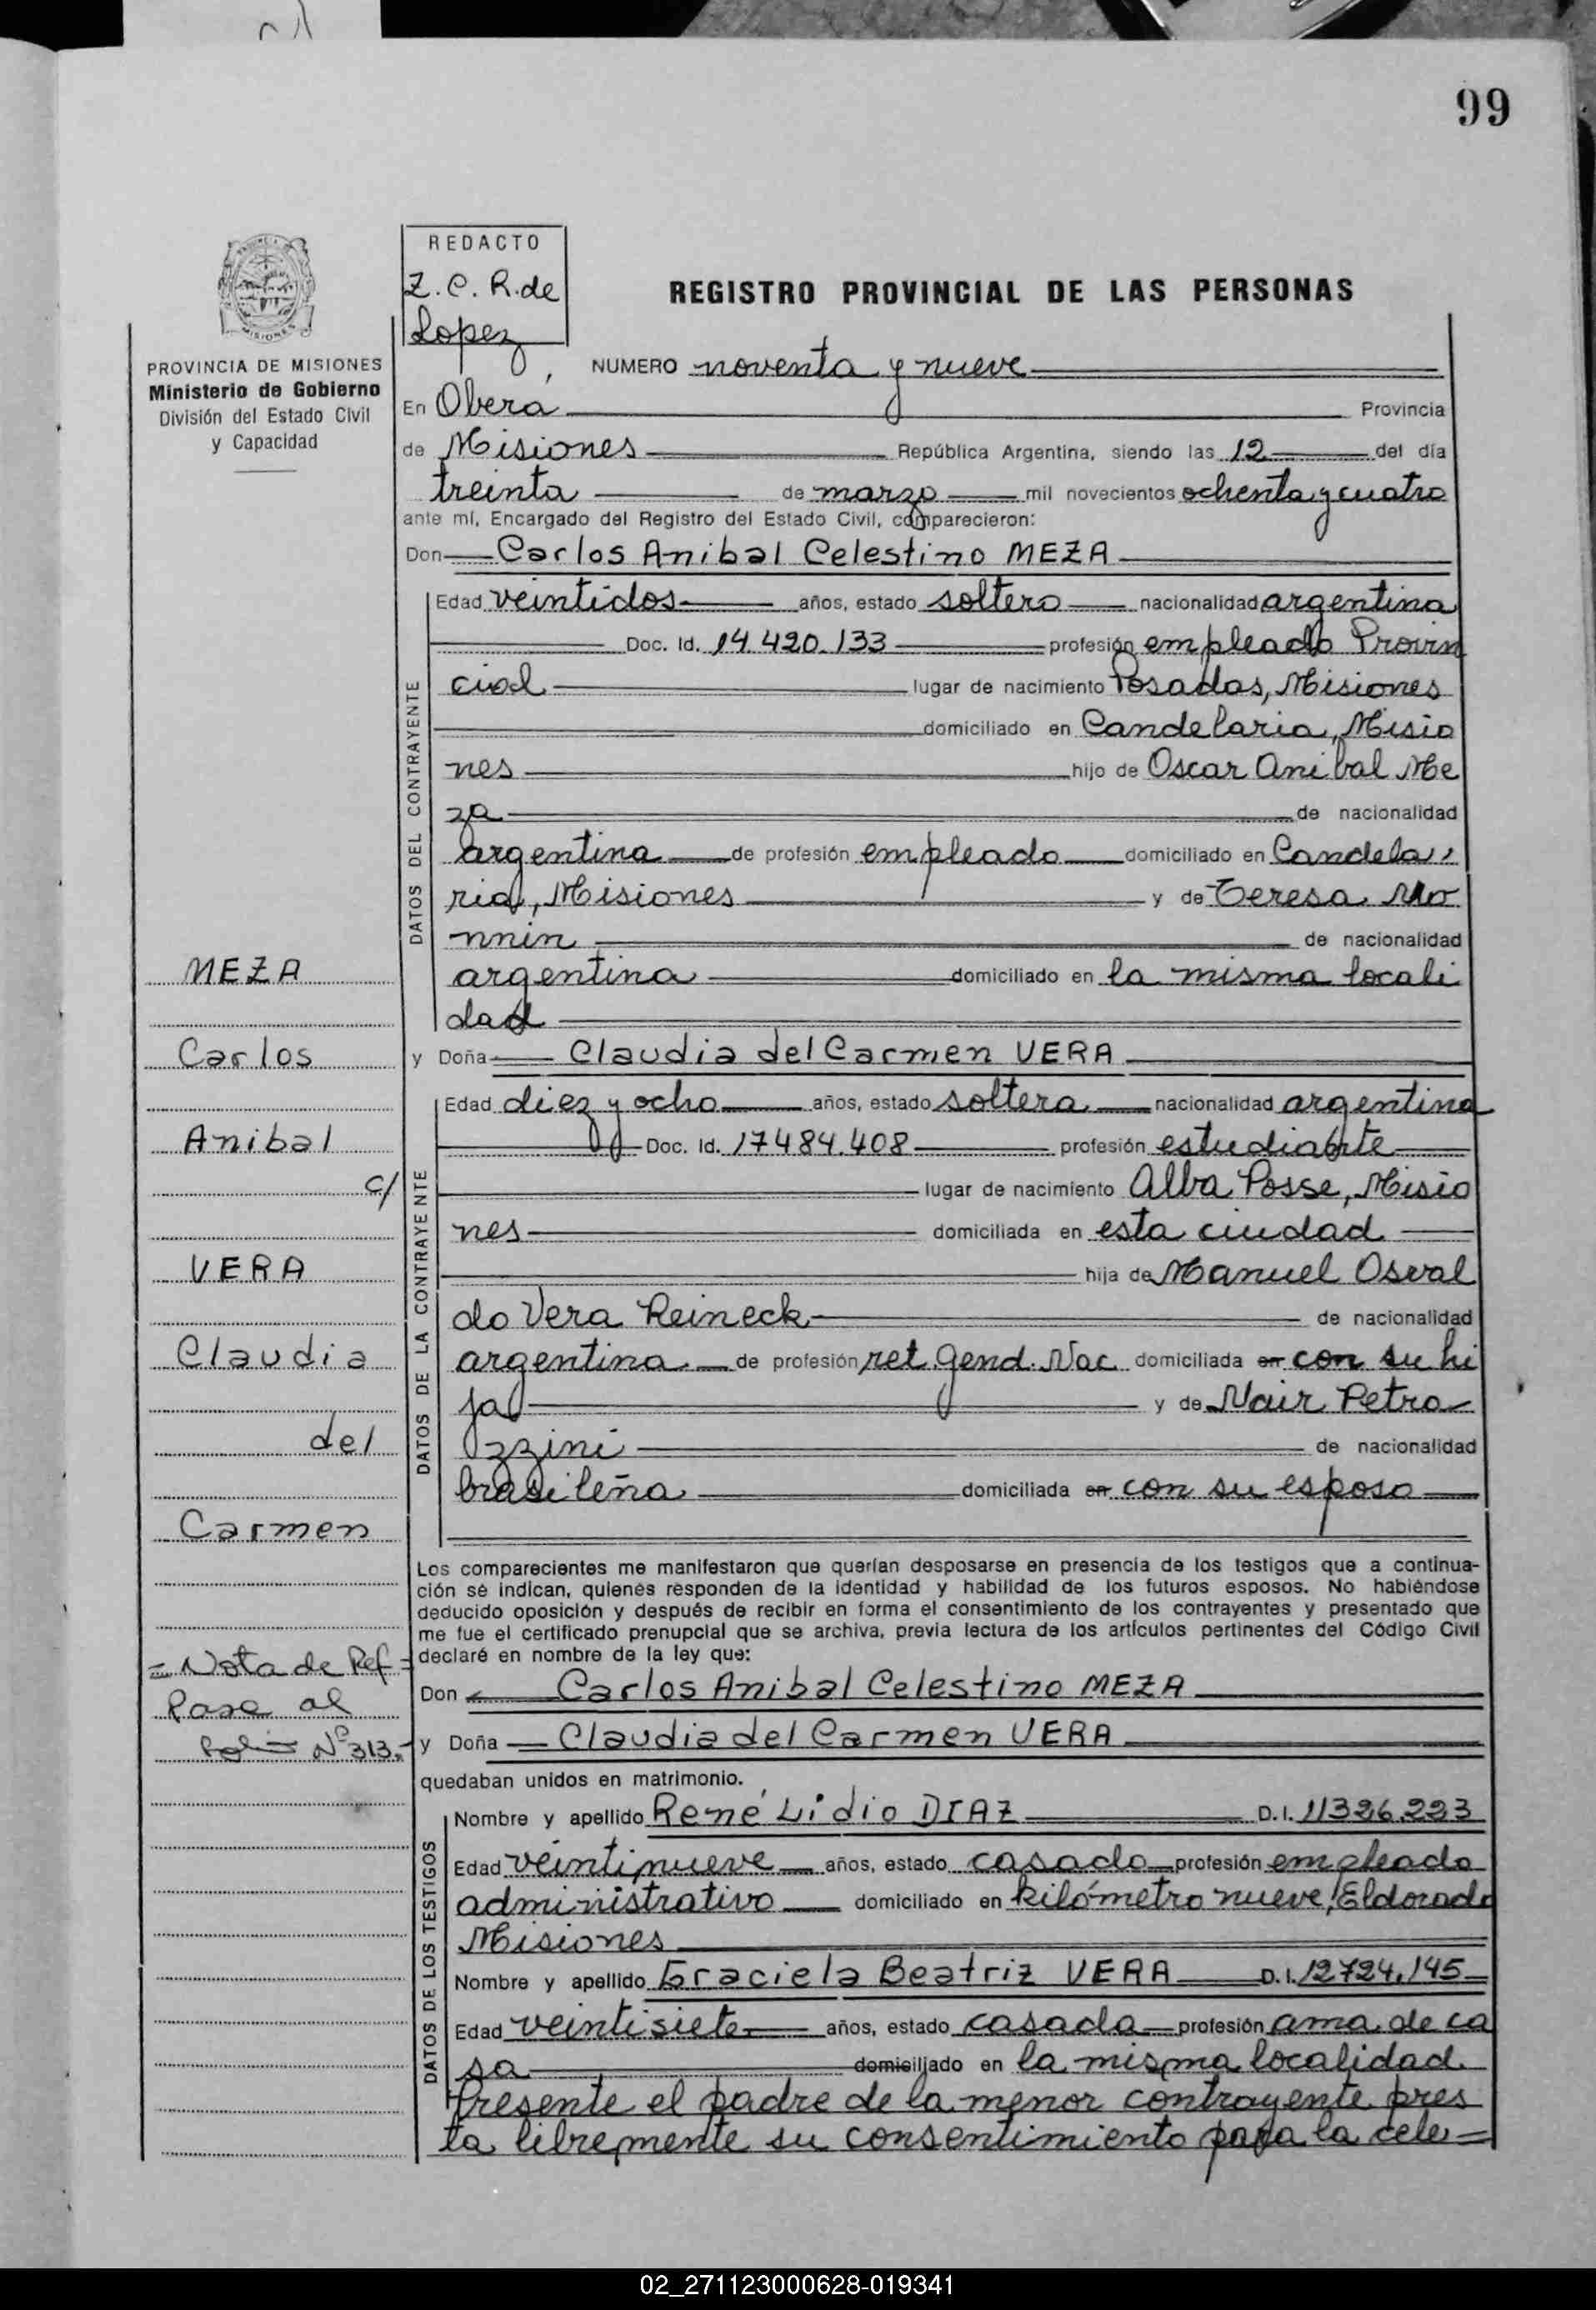 99
REDACTO
Z. C. R. de
Lopez
REGISTRO PROVINCIAL DE LAS PERSONAS
PROVINCIA DE MISIONES
Ministerio de Gobierno
División del Estado Civil
y Capacidad
NUMERO noventa y nueve
En Oberá Provincia
de Misiones República Argentina, siendo las 12 del día
treinta de marzo mil novecientos ochenta y cuatro
ante mí, Encargado del Registro del Estado Civil, comparecieron:
Don Carlos Anibal Celestino MEZA
DATOS DEL CONTRAYENTE
Edad veintidos años, estado soltero nacionalidad argentina
Doc. Id. 14.420.133 profesión empleado Provin
cial lugar de nacimiento Posadas, Misiones
domiciliado en Candelaria, Misio
nes hijo de Oscar Anibal Me
za de nacionalidad
argentina de profesión empleado domiciliado en Candela
ria, Misiones y de Teresa Mo
nnin de nacionalidad
argentina domiciliado en la misma locali
dad
y Doña Claudia del Carmen VERA
DATOS DE LA CONTRAYENTE
Edad diez y ocho años, estado soltera nacionalidad argentina
Doc. Id. 17484.408 profesión estudiante
lugar de nacimiento Alba Posse, Misio
nes domiciliada en esta ciudad
hija de Manuel Osval
do Vera Reineck de nacionalidad
argentina de profesión ret. Gend. Nac domiciliada en con su hi
ja y de Nair Petro
zzini de nacionalidad
brasileña domiciliada en con su esposo
MEZA
Carlos
Anibal
c/
VERA
Claudia
del
Carmen
= Nota de Ref =
Pase al
Folio Nº 313.-
Los comparecientes me manifestaron que querían desposarse en presencia de los testigos que a continua-
ción se indican, quienes responden de la identidad y habilidad de los futuros esposos. No habiéndose
deducido oposición y después de recibir en forma el consentimiento de los contrayentes y presentado que
me fue el certificado prenupcial que se archiva, previa lectura de los artículos pertinentes del Código Civil
declaré en nombre de la ley que:
Don Carlos Anibal Celestino MEZA
y Doña Claudia del Carmen VERA
quedaban unidos en matrimonio.
DATOS DE LOS TESTIGOS
Nombre y apellido René Lidio DIAZ D.I. 11326.223
Edad veintinueve años, estado casado profesión empleado
administrativo domiciliado en kilómetro nueve, Eldorado
Misiones
Nombre y apellido Graciela Beatriz VERA D.I. 12724.145
Edad veintisiete años, estado casada profesión ama de ca
sa domiciliado en la misma localidad.
Presente el padre de la menor contrayente pres
ta libremente su consentimiento para la cele=
02_271123000628-019341